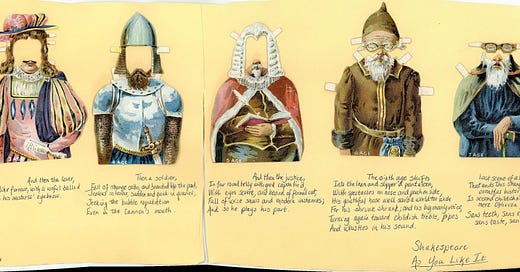 And then the lover,
Sighing like furnace, with a woful ballad
his mistress' eyebrow.
Then a soldier,
Full of strange oaths, and bearded like the pard,
Jealous in honour, sudden and quick in quarrel,
Seeking the bubble reputation
Even in the cannon's mouth.
5 AGE
And then the justice,
In fair round belly with good capon lin'd
With eyes severe, and beard of formal cut,
Full of wise saws and modern instances;
And so he plays his part.
6 AGE
The sixth age shifts
Into the lean and slipper'd pantaloon,
With spectacles on nose and pouch on side,
His youthful hose well sav'd a world too wide
For his shrunk shank; and his big manly voice,
Turning again toward childish treble, pipes
And whistles in his sound.
7 AGE
Last scene of a
That ends this strange
eventful histo
Is second childish
mere oblivion
Sans teeth, sans e
sans taste, sans
Shakespeare
As You Like It.